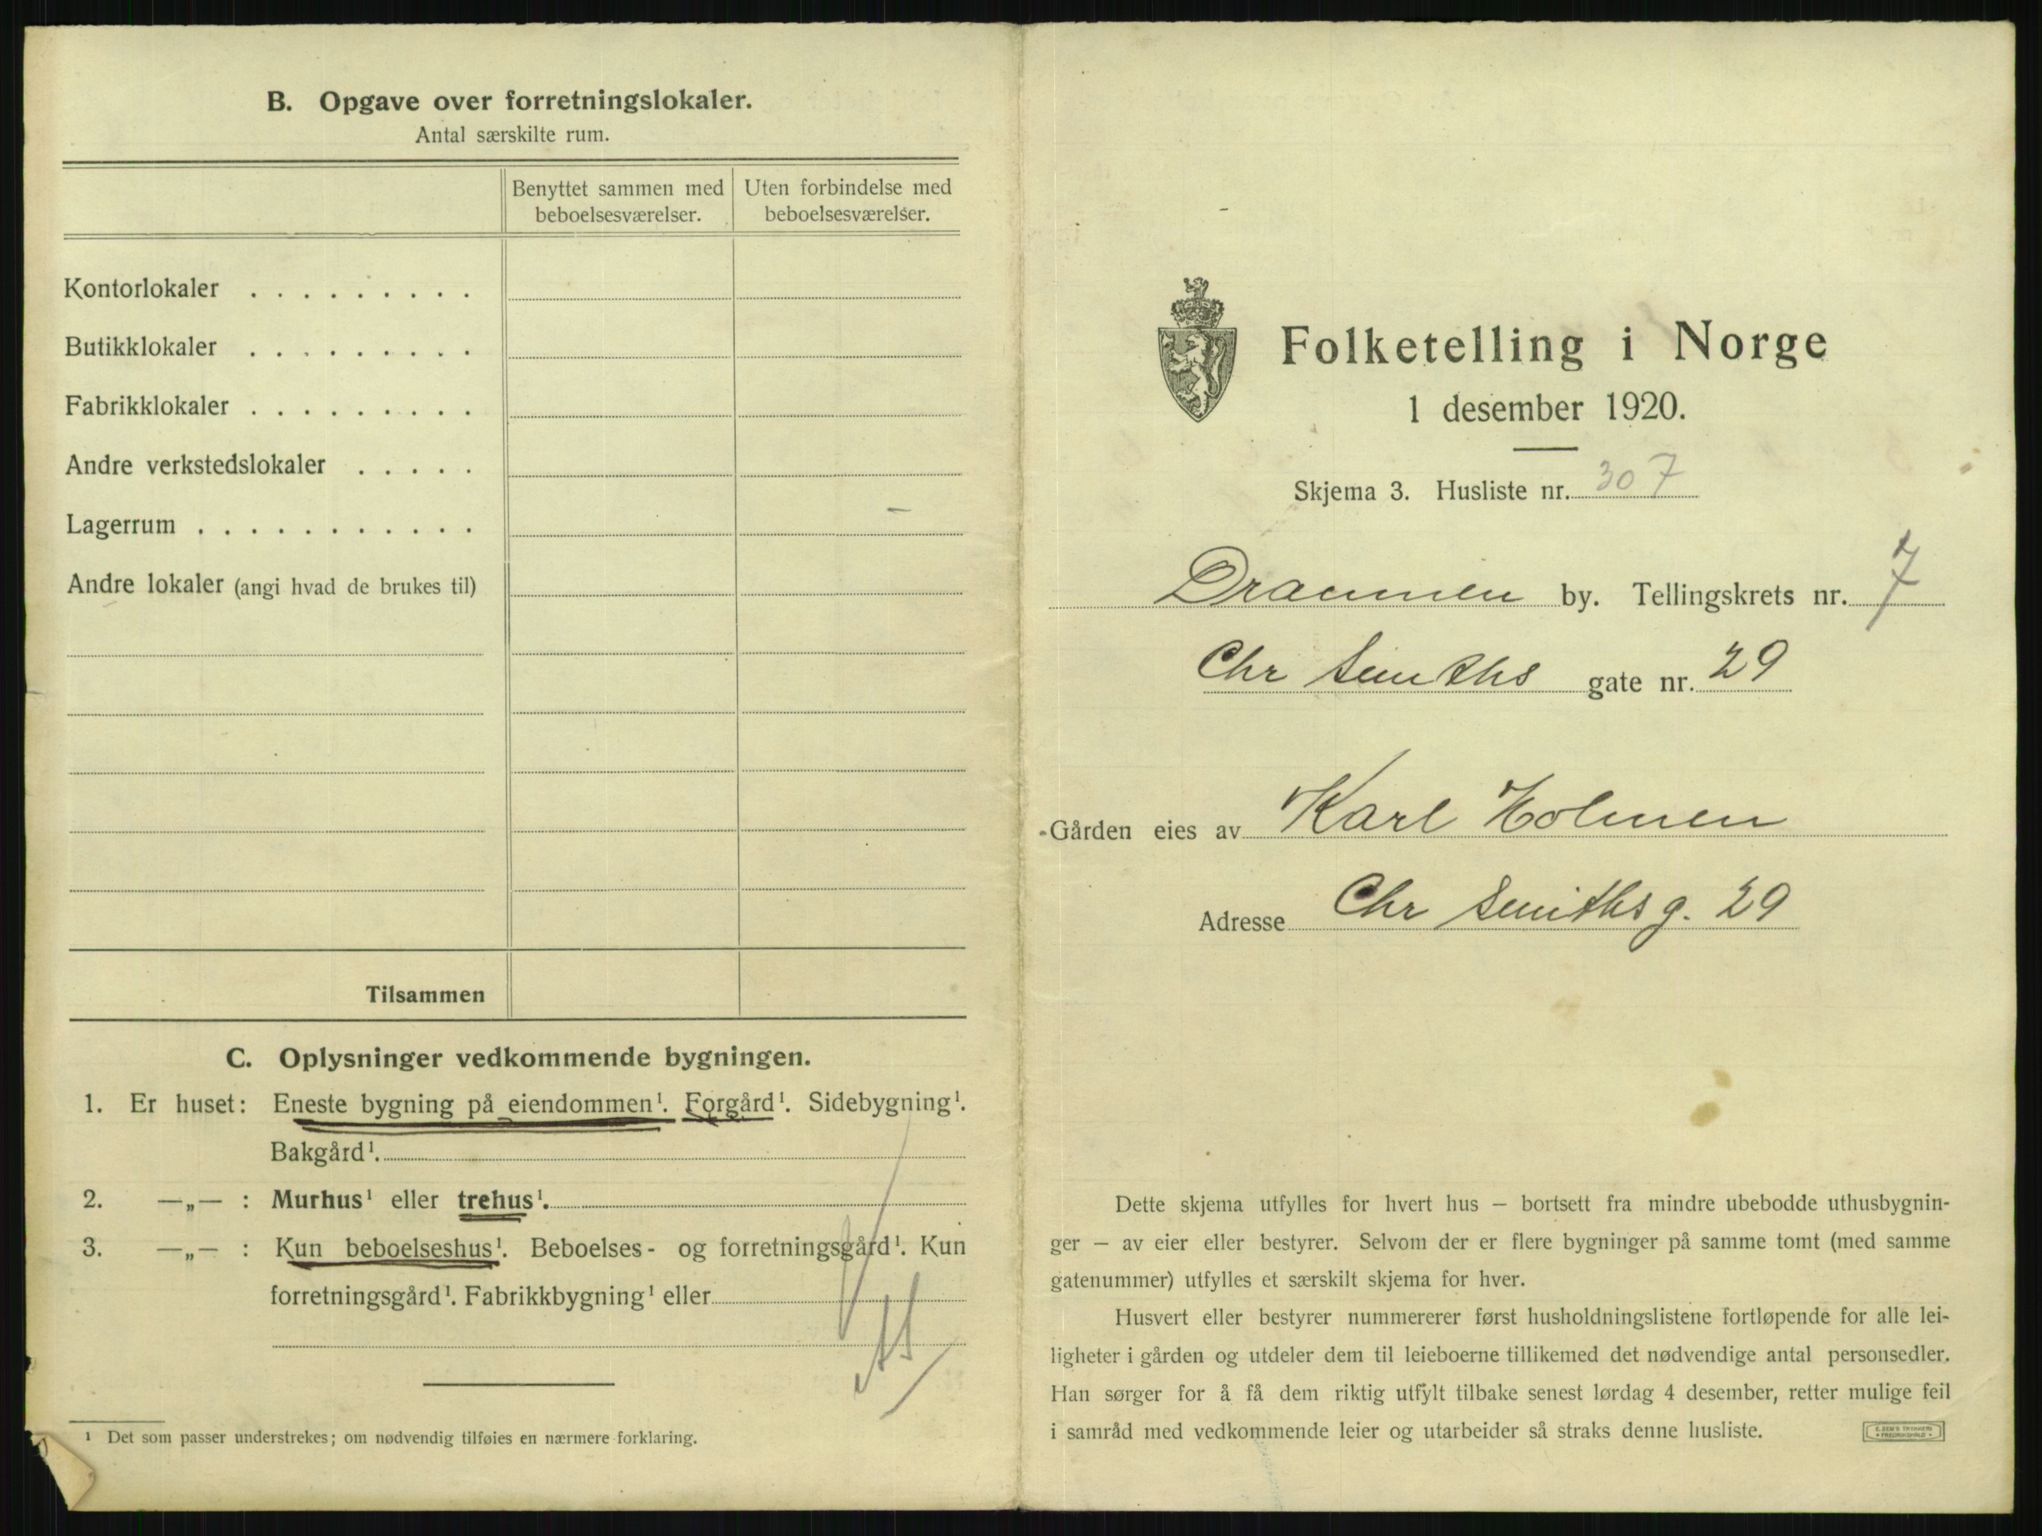 B. Opgave over forretningslokaler.
Antal særskilte rum.
Benyttet sammen med beboelsesværelser.
Uten forbindelse med beboelsesværelser.
Kontorlokaler . . . . . . . . .
Butikklokaler . . . . . . . . .
Fabrikklokaler . . . . . . . . .
Andre verkstedslokaler . . . . .
Lagerrum . . . . . . . . . . .
Andre lokaler (angi hvad de brukes til)
Tilsammen
C. Oplysninger vedkommende bygningen.
1. Er huset: Eneste bygning på eiendommen¹. Forgård¹. Sidebygning¹.
Bakgård¹.
2. —„— : Murhus¹ eller trehus¹.
3. —„— : Kun beboelseshus¹. Beboelses- og forretningsgård¹. Kun
forretningsgård¹. Fabrikkbygning¹ eller
¹ Det som passer understrekes; om nødvendig tilføies en nærmere forklaring.
Folketelling i Norge
1 desember 1920.
Skjema 3. Husliste nr. 307
Drammen by. Tellingskrets nr. 7
Chr Smiths gate nr. 29
Gården eies av Karl Holmen
Adresse Chr Smithsg. 29
Dette skjema utfylles for hvert hus – bortsett fra mindre ubebodde uthusbygnin-
ger – av eier eller bestyrer. Selvom der er flere bygninger på samme tomt (med samme
gatenummer) utfylles et særskilt skjema for hver.
Husvert eller bestyrer nummererer først husholdningslistene fortløpende for alle lei-
ligheter i gården og utdeler dem til leieboerne tillikemed det nødvendige antal personsedler.
Han sørger for å få dem riktig utfylt tilbake senest lørdag 4 desember, retter mulige feil
i samråd med vedkommende leier og utarbeider så straks denne husliste.